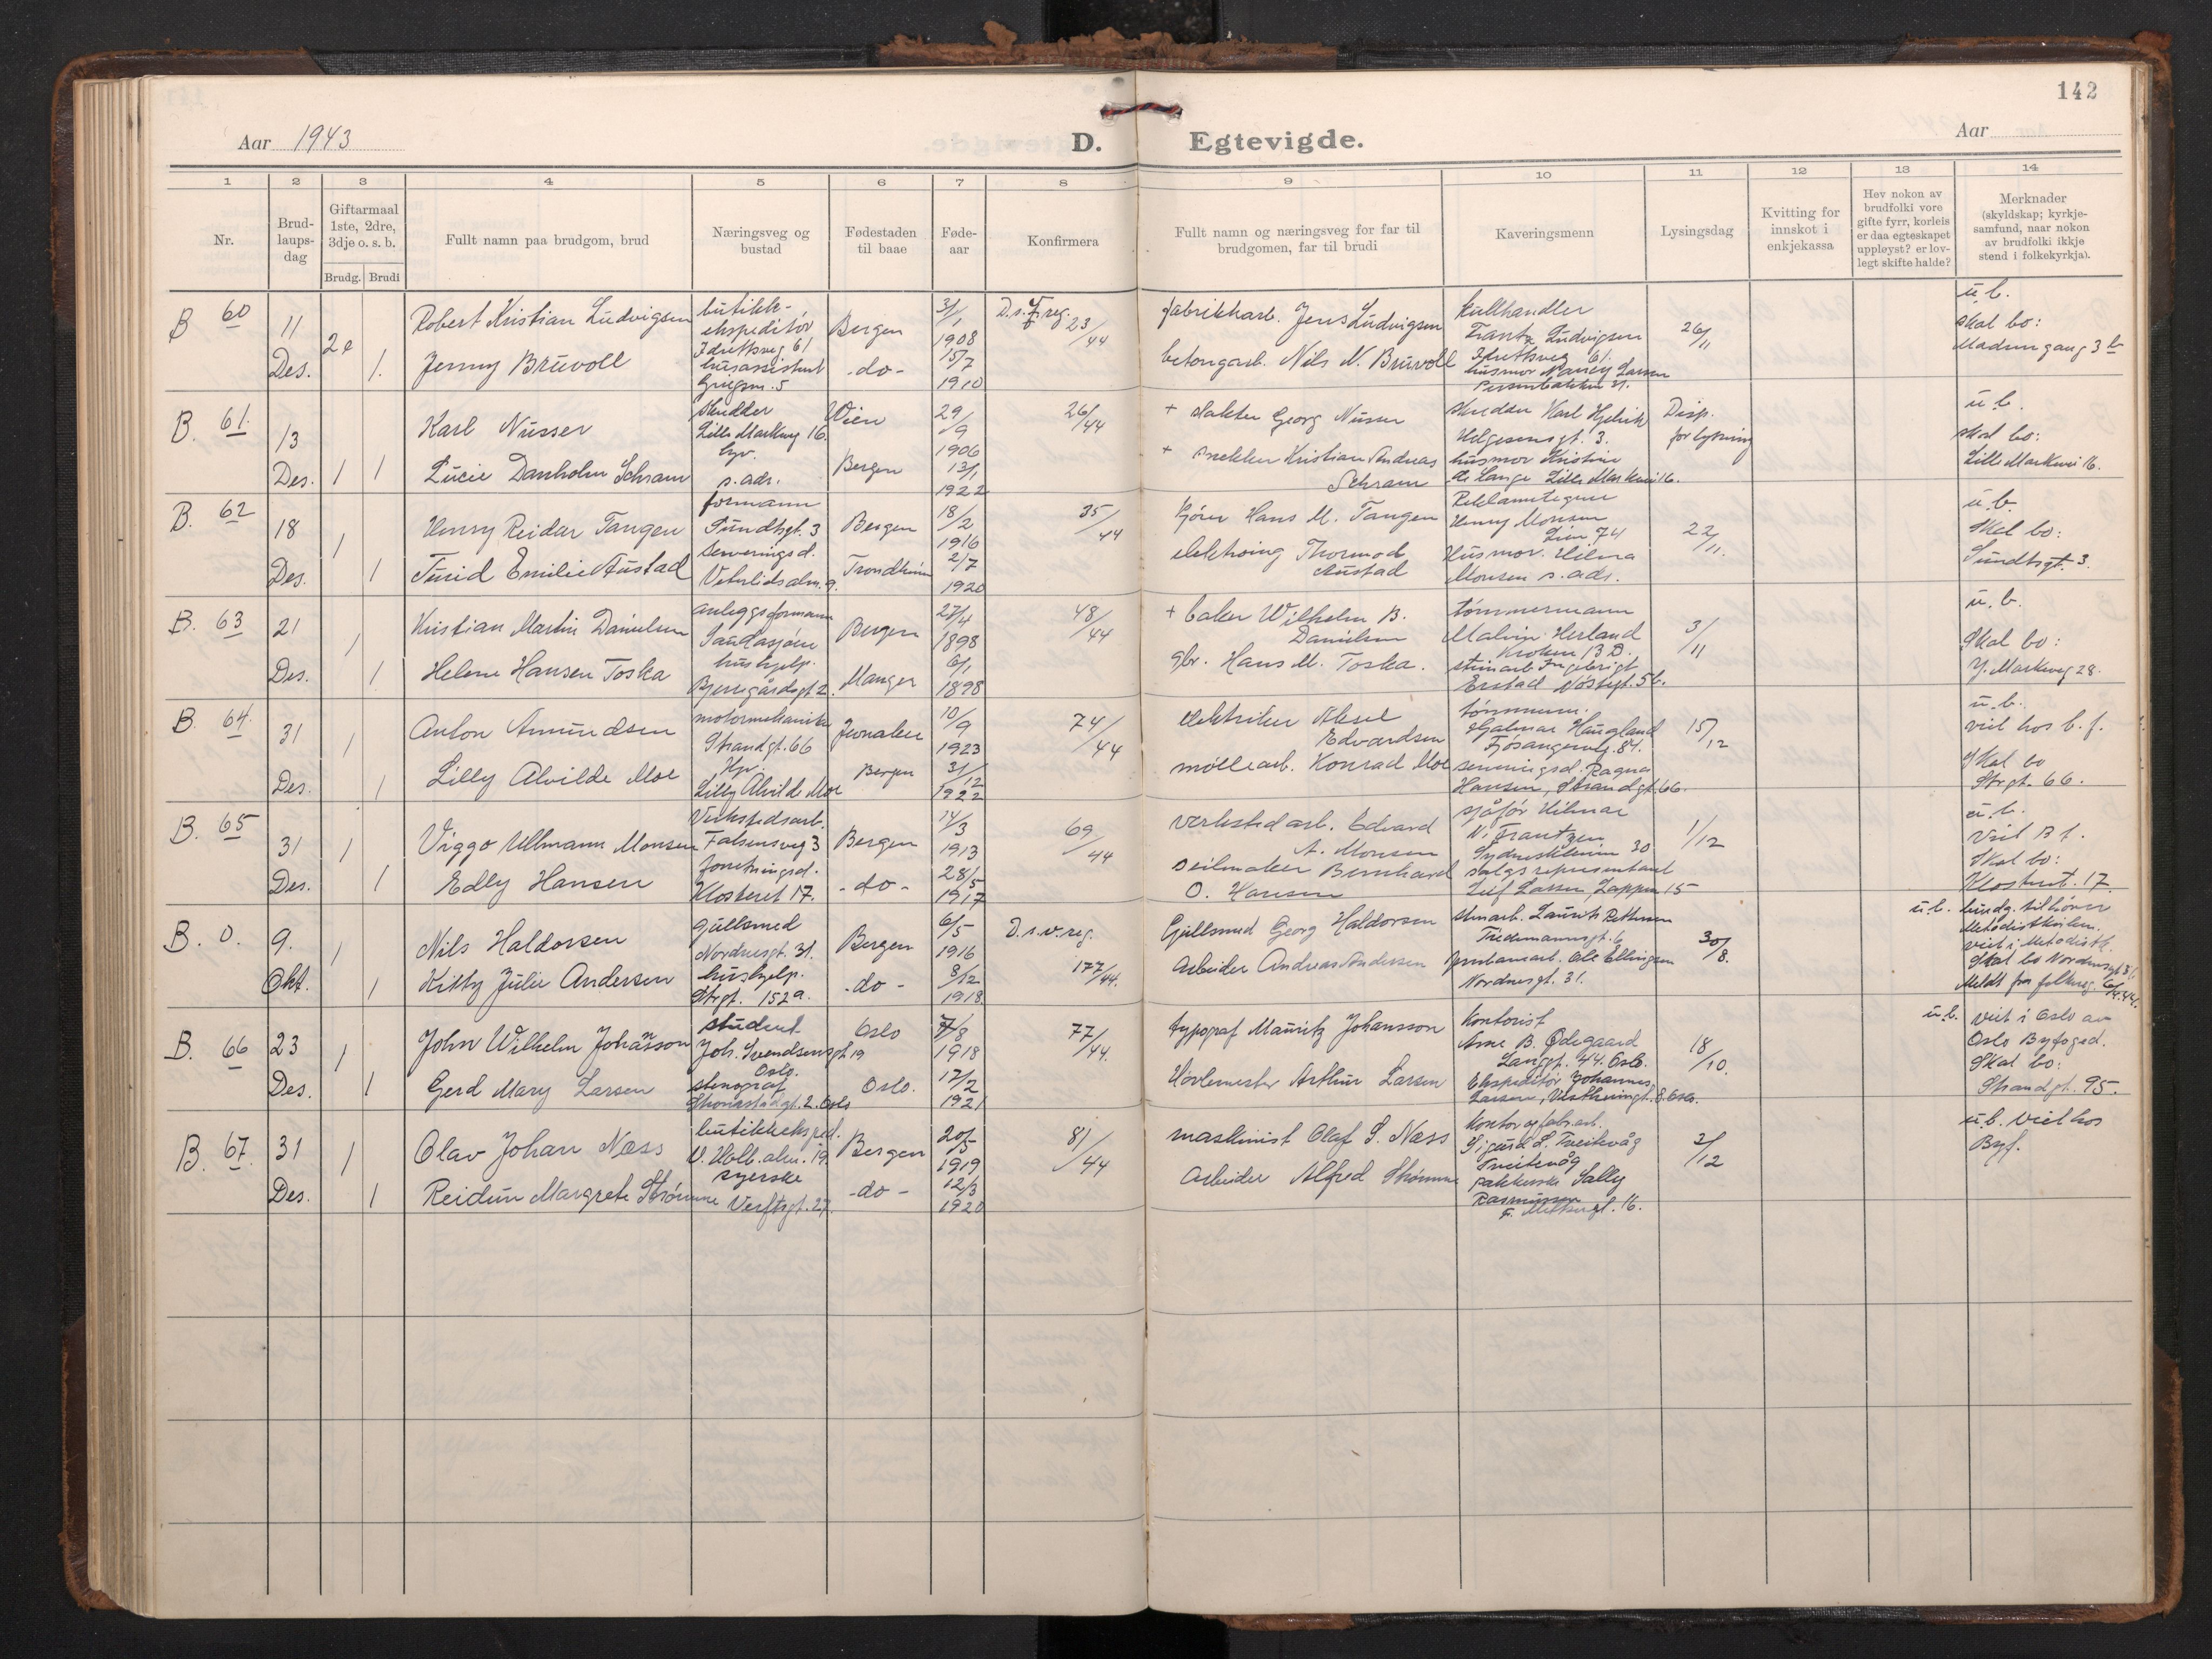 142
Aar 1943
D. Egtevigde.
Aar
1 2 3 4 5 6 7 8 9 10 11 12 13 14
Nr.
Brud-
laups-
dag
Giftarmaal
1ste, 2dre,
3dje o. s. b.
Brudg. Brudi
Fullt namn paa brudgom, brud
Næringsveg og
bustad
Fødestaden
til baae
Føde-
aar
Konfirmera
Fullt namn og næringsveg for far til
brudgomen, far til brudi
Kaveringsmenn
Lysingsdag
Kvitting for
innskot i
enkjekassa
Hev nokon av
brudfolki vore
gifte fyrr, korleis
er daa egteskapet
uppløyst? er lov-
legt skifte halde?
Merknader
(skyldskap; kyrkje-
samfund, naar nokon
av brudfolki ikkje
stend i folkekyrkja).
B 60
11
Des.
2e
1.
Robert Kristian Ludvigsen
Jenny Bruvoll
butikk-
ekspeditør
Idrettsveg 61
husassistent
Griegsn. 5
Bergen
-do-
3/1
1908
15/7
1910
23/44
fabrikkarb. Jens Ludvigsen
betongarb. Nils N. Bruvoll
kullhandler
Frantz Ludvigsen
Idrettsveg 61.
husmor Nancy Larsen
26/11
u.b.
skal bo:
B. 61.
13
Des.
1 1
Karl Nusser
Lucie Danholm Schram
Lille Markveg 16.
hjv.
s.adr.
Wien
Bergen
29/9
1906
13/1
1922
26/44
+ slakter Georg Nusser
+ snekker Kristian Andreas
Schram
Helgesensgt. 3.
husmor Kristine
de Lange Lille Markevei 16.
Disp.
for lysning
u.b.
skal bo:
Lille Markvei 16.
B. 62
18
Des.
1
1
Henry Reidar Tangen
Turid Emilie Austad
formann
Sundtsgt. 3
serveringsd.
Bergen
Trondheim
18/2
1916
2/7
1920
35/44
kjører Hans M. Tangen
Thormod
Austad
Reklametegner
Henry Monsen
Lien 74
Husmor. Hilma
Monsen s.adr.
22/11.
u.b.
Skal bo:
Sundtsgt. 3.
B. 63
21
Des.
1
1
Kristian Martin Danielsen
Helene Hansen Toska
anleggsformann
Saudasjøen
hushjelp.
Bjergårdsgt 2.
Bergen
Manger
27/4
1898
6/1
1898
48/44
+ baker Wilhelm B.
Danielsen
gbr. Hans M. Toska.
tømmermann
Malvin Herland
Kroken 13 B.
steinarb. Ingebrigt
Erstad Nøstegt. 56.
3/11
u.b.
Skal bo:
Y. Markveg 28.
B 64.
31
Des.
1
1
Anton Amundsen
Lilly Alvilde Moe
motormekaniker
Strandgt. 66
Hjv.
Lilly Alvilde Moe
Jevnaker
Bergen
10/9
1923
31/12
1922
74/44
elektriker Aksel
Edvardsen
møllearb. Konrad Moe
tømmerm.
Hjalmar Haugland
Fjøsangerveg. 84.
serveringsd. Ragna
Hansen, Strandgt. 66.
15/12
u.b.
viet hos b.f.
Skal bo
Strgt. 66.
B. 65
31
Des.
1
1
Viggo Ullmann Monsen
Edly Hansen
Verkstedsarb.
Falsensveg 3
forretningsd.
Klosteret 17.
Bergen
-do-
14/3
1913
28/5
1917
69/44
verkstedarb. Edvard
A. Monsen
seilmaker Bernhard
O. Hansen
sjåfør Hilmar
N. Frantzen
Sydneskleiven 30
salgsrepresentant
Leif Larsen, Zappen 15
1/12
u.b.
Viet B.f.
Skal bo:
Klosteret. 17.
B. 0.
9.
Okt.
1
1
Nils Haldorsen
Kitty Julie Andersen
gullsmed
Nordnesgt. 31.
hushjelp.
Strgt. 152a.
Bergen
-do-
6/5
1916
3/12
1918
D.s.v.reg.
177/44.
Gullsmed Georg Haldorsen
Arbeider Andreas Andersen
stenarb. Laurits Pettersen
Tidemannsgt. 6
jernbanearb. Ole Ellingsen
Nordnesgt. 31.
30/8.
u.b. brudg. tilhører
Metodistkirken.
viet i Metodistk.
Skal bo Nordnesgt 31.
Meldt fra folkereg. 6/4.44.
B. 66
23
Des.
1
1
John Wilhelm Johansson
Gerd Mary Larsen
student
Joh. Svendsensgt 19
Oslo.
stenograf
Oslo
Oslo.
7/8
1918
17/2
1921
77/44.
typograf Mauritz Johansson
Høvlemester Arthur Larsen
Kontorist
Arne B. Ødegaard
Langgt. 44, Oslo.
Ekspeditør Johannes
18/10.
u.b. Viet i Oslo av
Oslo Byfoged.
Skal bo:
Strandgt. 95.
B. 67.
31
Des.
1
1
Olav Johan Næss
Reidun Margrete Strømme
butikkeksped.
V. Holb. alm. 19.
syerske
Verftsgt. 27.
Bergen
-do-
20/5
1919
12/3
1920
81/44
maskinist Olaf S. Næss
Arbeider Alfred Strømme
Kontor og fabr.arb.
Sigurd L. Tveitevåg
Tveitevåg
pakkerske Sally
Rasmussen
2/12
u.b. Viet hos
Byf.